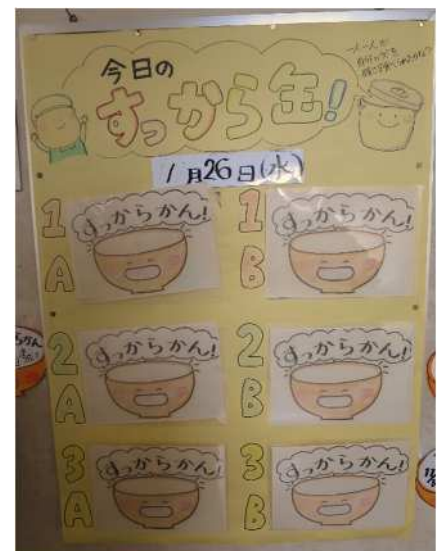 今日の
すっから缶!
1月26日(水)
1A
すっからかん!
1B
すっからかん!
2A
すっからかん!
2B
すっからかん!
3A
すっからかん!
3B
すっからかん!